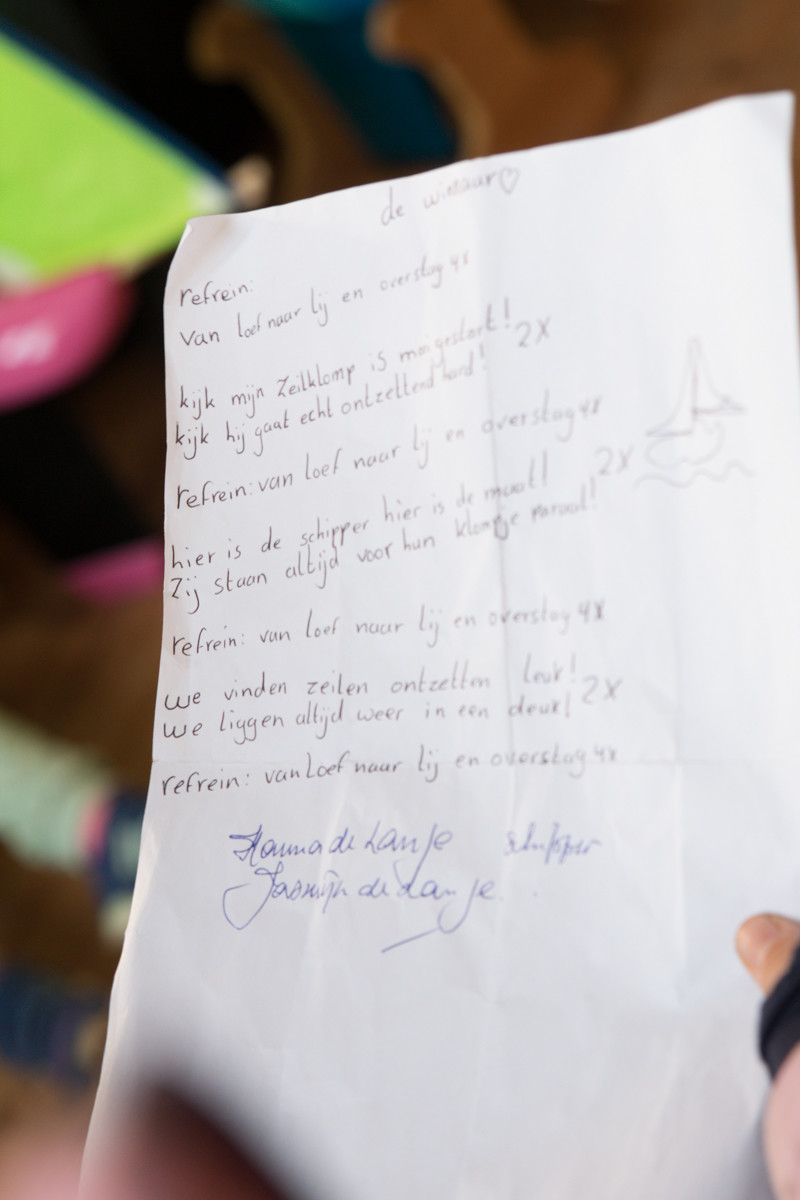 de winnaar♡
refrein:
van loef naar lij en overstag 4x
kijk mijn zeilklomp is mee gestart! 2x
kijk hij gaat echt ontzettend hard!
refrein: van loef naar lij en overstag 4x
hier is de schipper hier is de maat! 2x
Zij staan altijd voor hun klompje paraat!
refrein: van loef naar lij en overstag 4x
we vinden zeilen ontzetten leuk! 2x
we liggen altijd weer in een deuk!
refrein: van loef naar lij en overstag 4x
Hanna de Lange schipper
Jasmijn de Lange